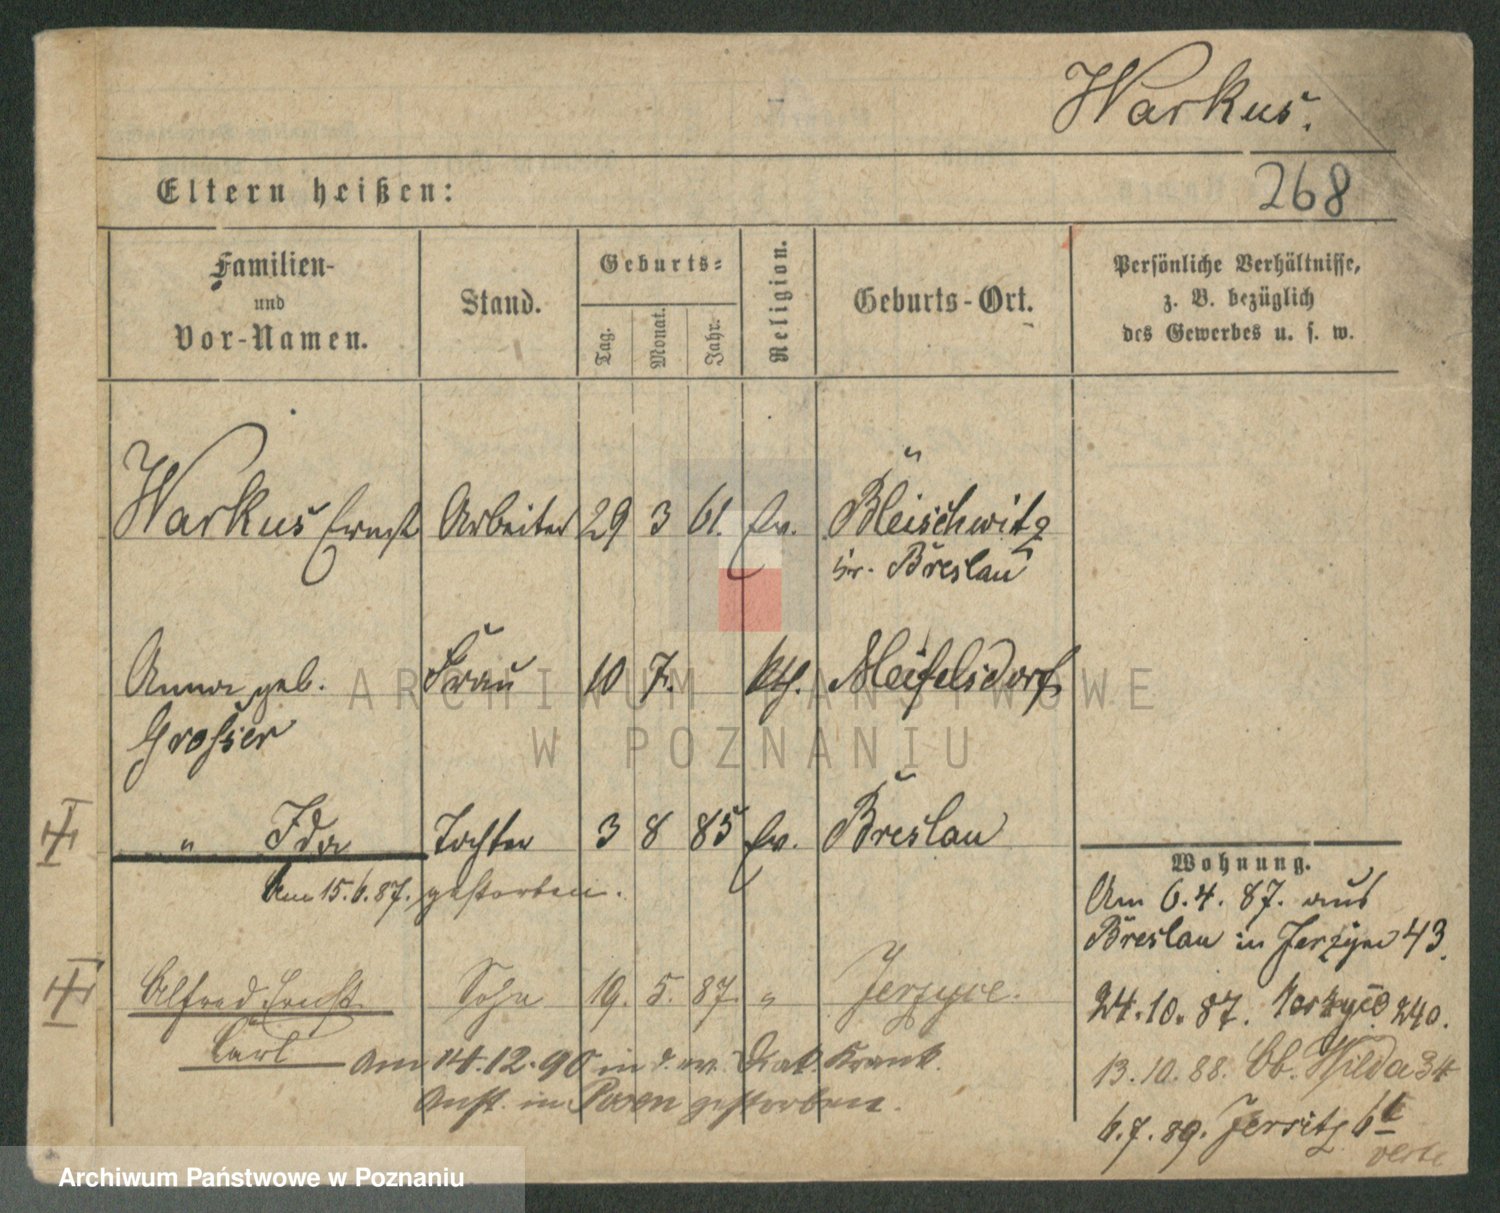 Warkus.
268
Eltern heißen:
Familien-
und
Vor-Namen.
Stand.
Geburts-
Tag.
Monat.
Jahr.
Religion.
Geburts-Ort.
Persönliche Verhältnisse,
z. B. bezüglich
des Gewerbes u. s. w.
Warkus Ernst Arbeiter 29 3 61. ev. Bleischwitz
Kr. Breslau
Anna geb. Frau 10 7. kth. Meifelsdorf
Grosser
" Ida Tochter 3 8 85 ev. Breslau
Am 15.6.87. gestorben.
Alfred Ernst Sohn 19. 5. 87. " Jerzyce.
Carl Am 14.12.90 in d. Krank.
Anst. in Posen gestorben.
Wohnung.
Am 6.4.87. aus
Breslau in Jerzyce 43.
24.10.87. 240.
13.10.88. Ob. Wilda 34
6.7.89. Jersitz 6
verte
ARCHIWUM PAŃSTWOWE
W POZNANIU
Archiwum Państwowe w Poznaniu